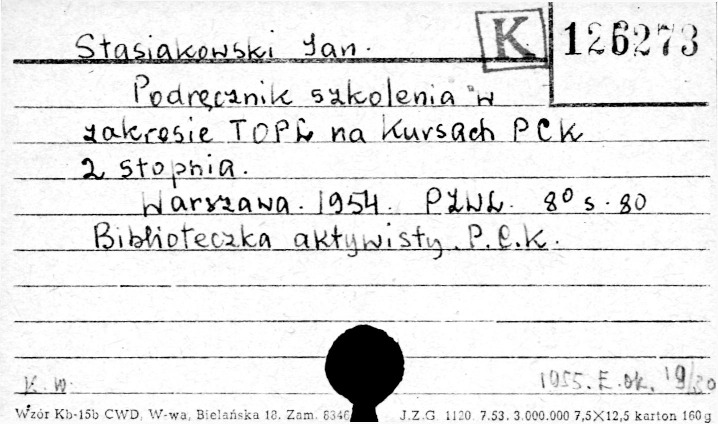 Stasiakowski Jan.
K 126273
Podręcznik szkolenia w
zakresie TOPL na Kursach PCK
2 stopnia.
Warszawa. 1954. PZWL. 8⁰ s. 80
Biblioteczka aktywisty P.C.K.
K.W. 1955. E. ok. 19/30
Wzór Kb-15b CWD, W-wa, Bielańska 18. Zam. 8346 J.Z.G. 1120. 7.53. 3.000.000 7,5×12,5 karton 160 g